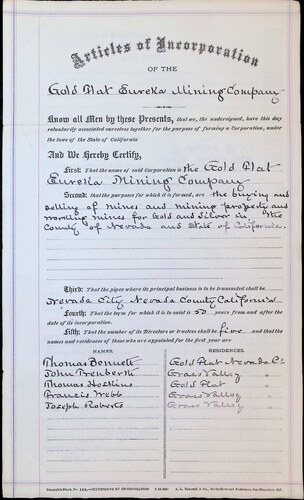 Articles of Incorporation
OF THE
Gold Flat Eureka Mining Company
Know all Men by these Presents, that we, the undersigned, have this day
voluntarily associated ourselves together for the purpose of forming a Corporation, under
the laws of the State of California
And We Hereby Certify,
First: That the name of said Corporation is the Gold Flat
Eureka Mining Company
Second: that the purposes for which it is formed, are the buying and
selling of mines and mining property and
working mines for Gold and Silver in the
County of Nevada and State of California.
Third: That the place where its principal business is to be transacted shall be
Nevada City Nevada County California
Fourth: That the term for which it is to exist is 50 years from and after the
date of its incorporation.
Fifth: That the number of its Directors or trustees shall be five and that the
names and residences of those who are appointed for the first year are
NAMES. RESIDENCES.
Thomas Bennett Gold Flat Nevada Co
John Trenberth Grass Valley "
Thomas Hoskins Gold Flat "
Francis Webb Grass Valley "
Joseph Roberts Grass Valley "
CERTIFICATE OF INCORPORATION